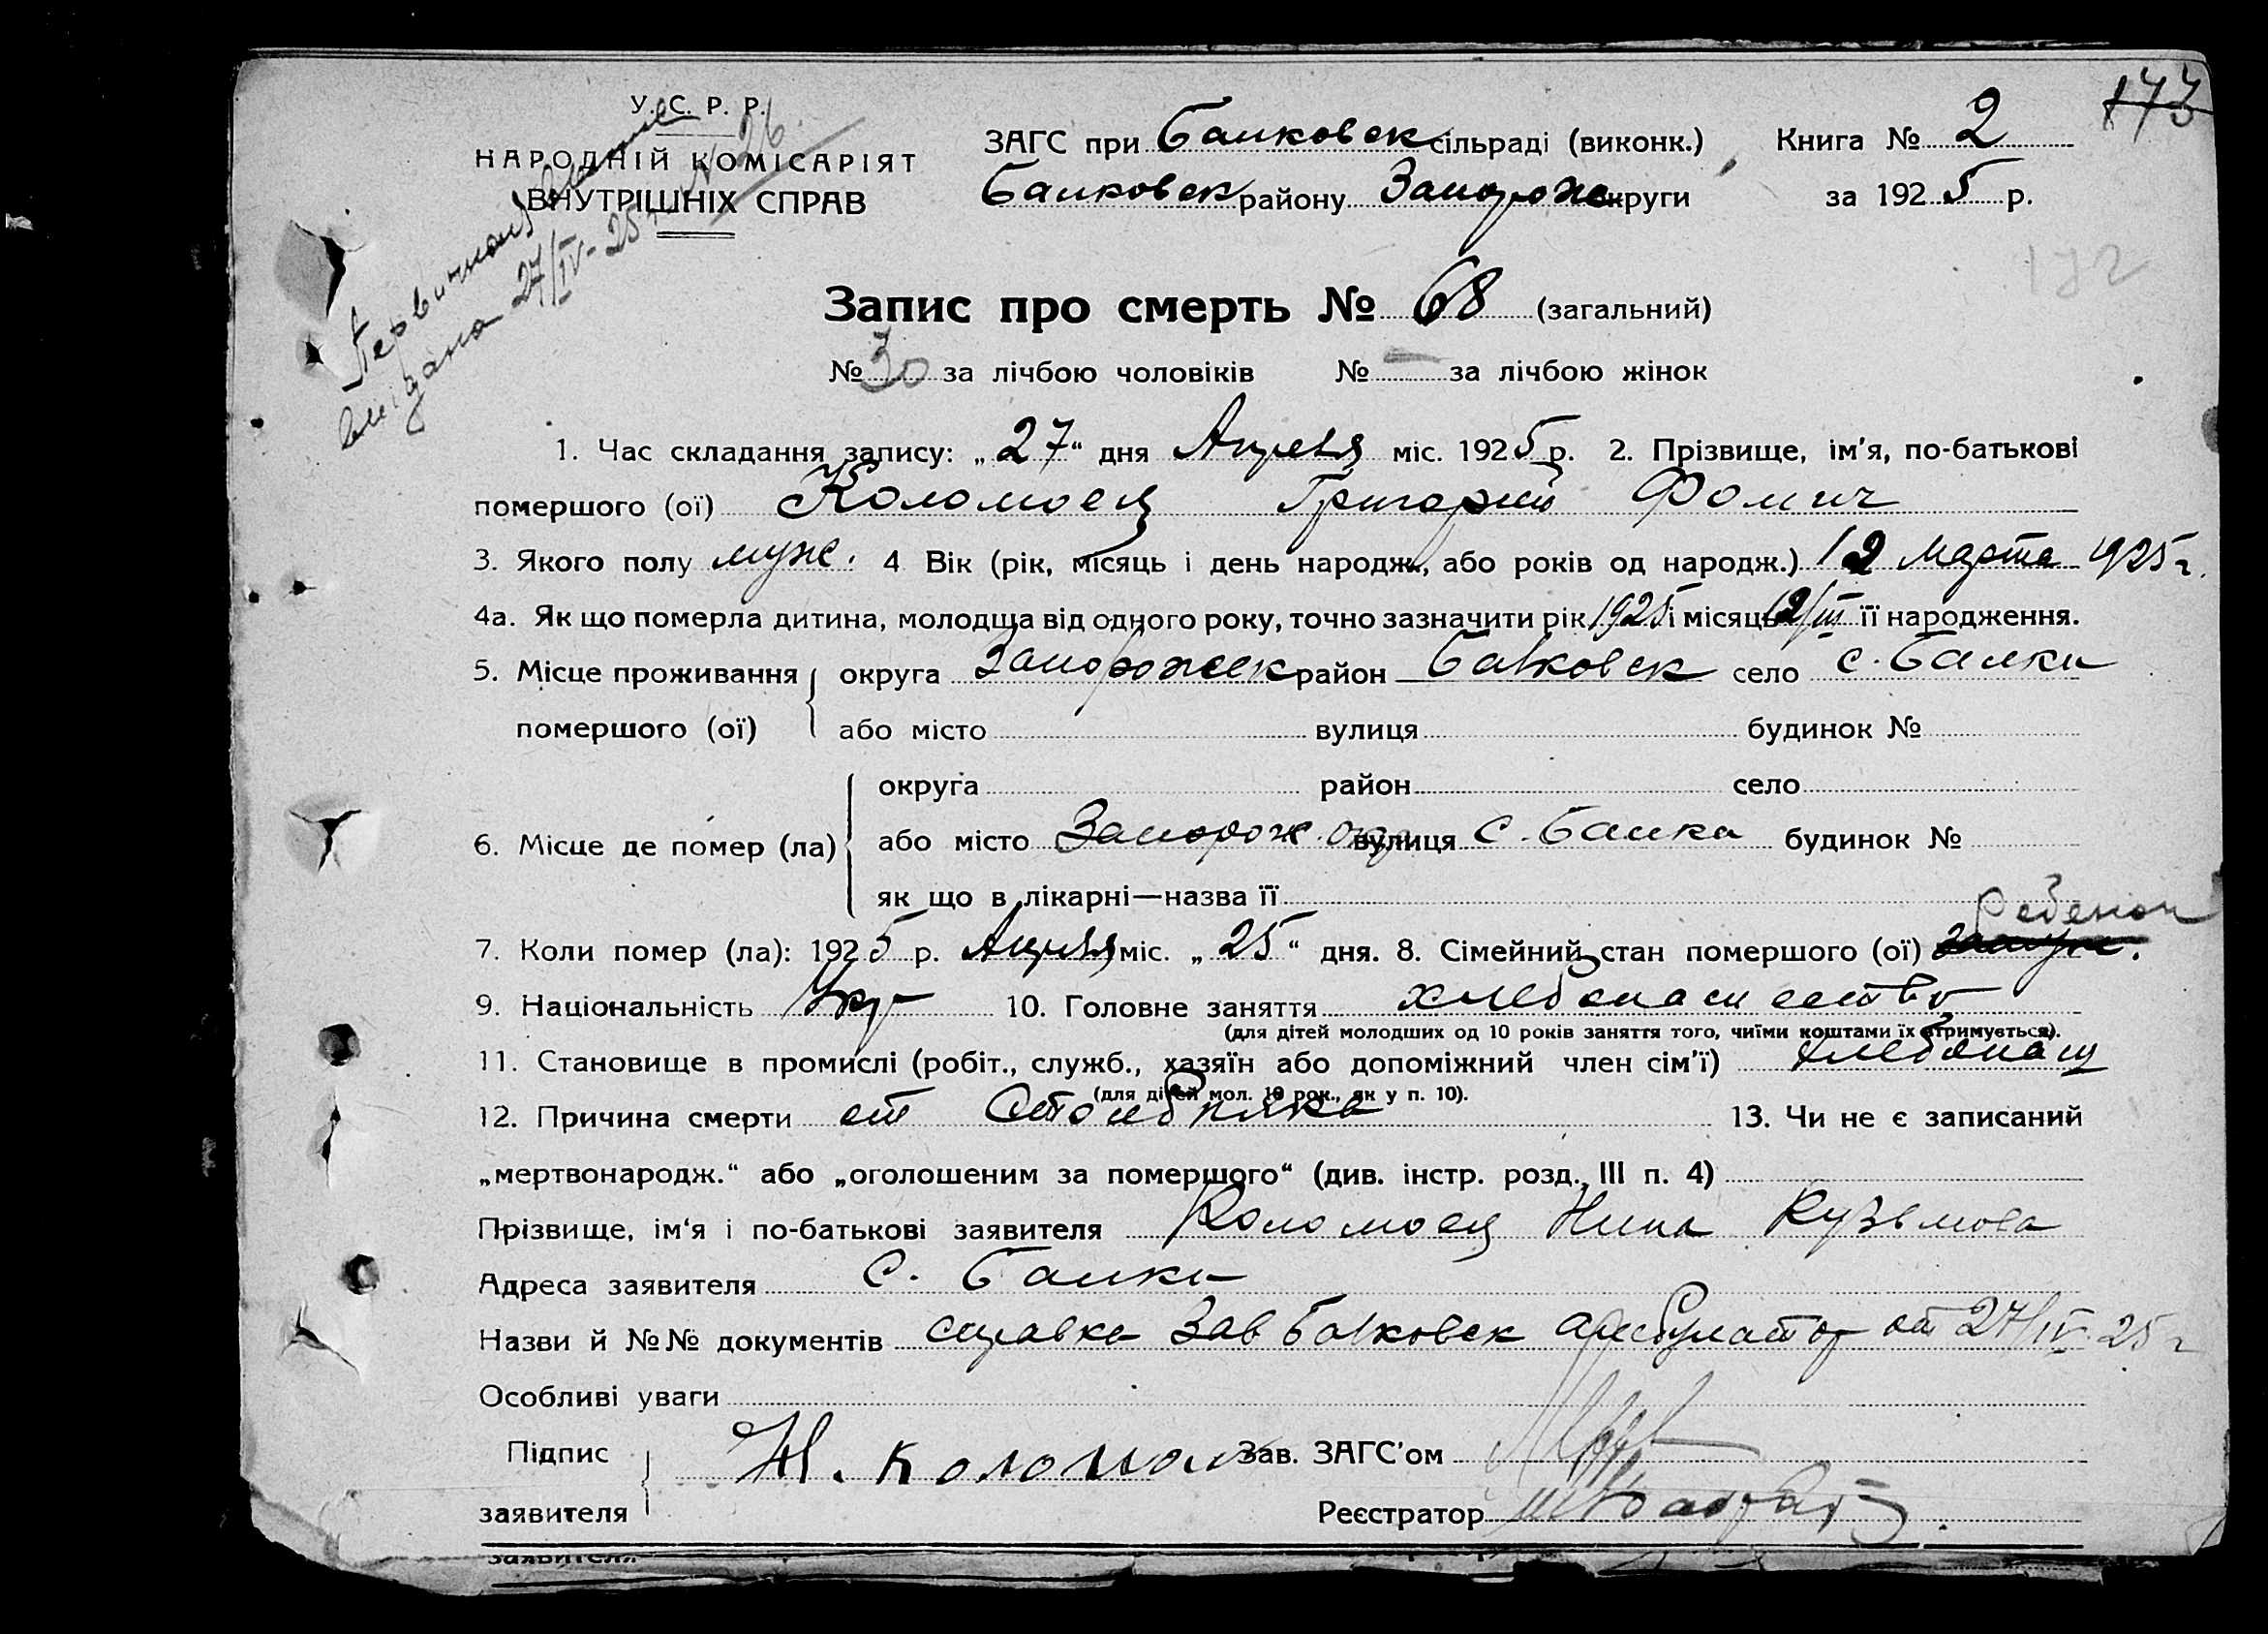 У. С. Р. Р.
НАРОДНІЙ КОМІСАРІЯТ
ВНУТРІШНІХ СПРАВ
Первичная выпись № 26.
выдана 27/IV-25 г.
ЗАГС при Балковск сільраді (виконк.) Книга № 2
Балковск району Запорож округи за 1925 р.
172
Запис про смерть № 68 (загальний)
№ 30 за лічбою чоловіків № — за лічбою жінок
1. Час складання запису: „27“ дня Апреля міс. 1925 р. 2. Прізвище, ім’я, по-батькові
помершого (ої) Коломоец Григорий Фомич
3. Якого полу муж. 4 Вік (рік, місяць і день народж., або років од народж.) 12 марта 1925 г.
4а. Як що померла дитина, молодща від одного року, точно зазначити рік 1925 і місяць 12/III її народження.
5. Місце проживання округа Запорожск район Балковск село с. Балки
помершого (ої) або місто вулиця будинок №
округа район село
6. Місце де помер (ла) або місто Запорож. окр. вулиця с. Балка будинок №
як що в лікарні—назва її
Ребенок
7. Коли помер (ла): 1925 р. Апреля міс. „25“ дня. 8. Сімейний стан помершого (ої)
9. Національність Укр 10. Головне заняття хлебопашество
(для дітей молодших од 10 років заняття того, чиїми коштами їх втримується).
11. Становище в промислі (робіт., служб., хазяїн або допоміжний член сім’ї) хлебопащ
(для дітей мол. 10 рок., як у п. 10).
12. Причина смерти от Столбняка 13. Чи не є записаний
„мертвонародж.“ або „оголошеним за померщого“ (див. інстр. розд. III п. 4)
Прізвище, ім‘я і по-батькові заявителя Коломоец Нина Кузьмова
Адреса заявителя с. Балки
Назви й №№ документів справка Зав Балковск амбулатор от 27/IV 25 г
Особливі уваги
Підпис Н. Коломоец Зав. ЗАГС’ом
заявителя Реєстратор
заявителя